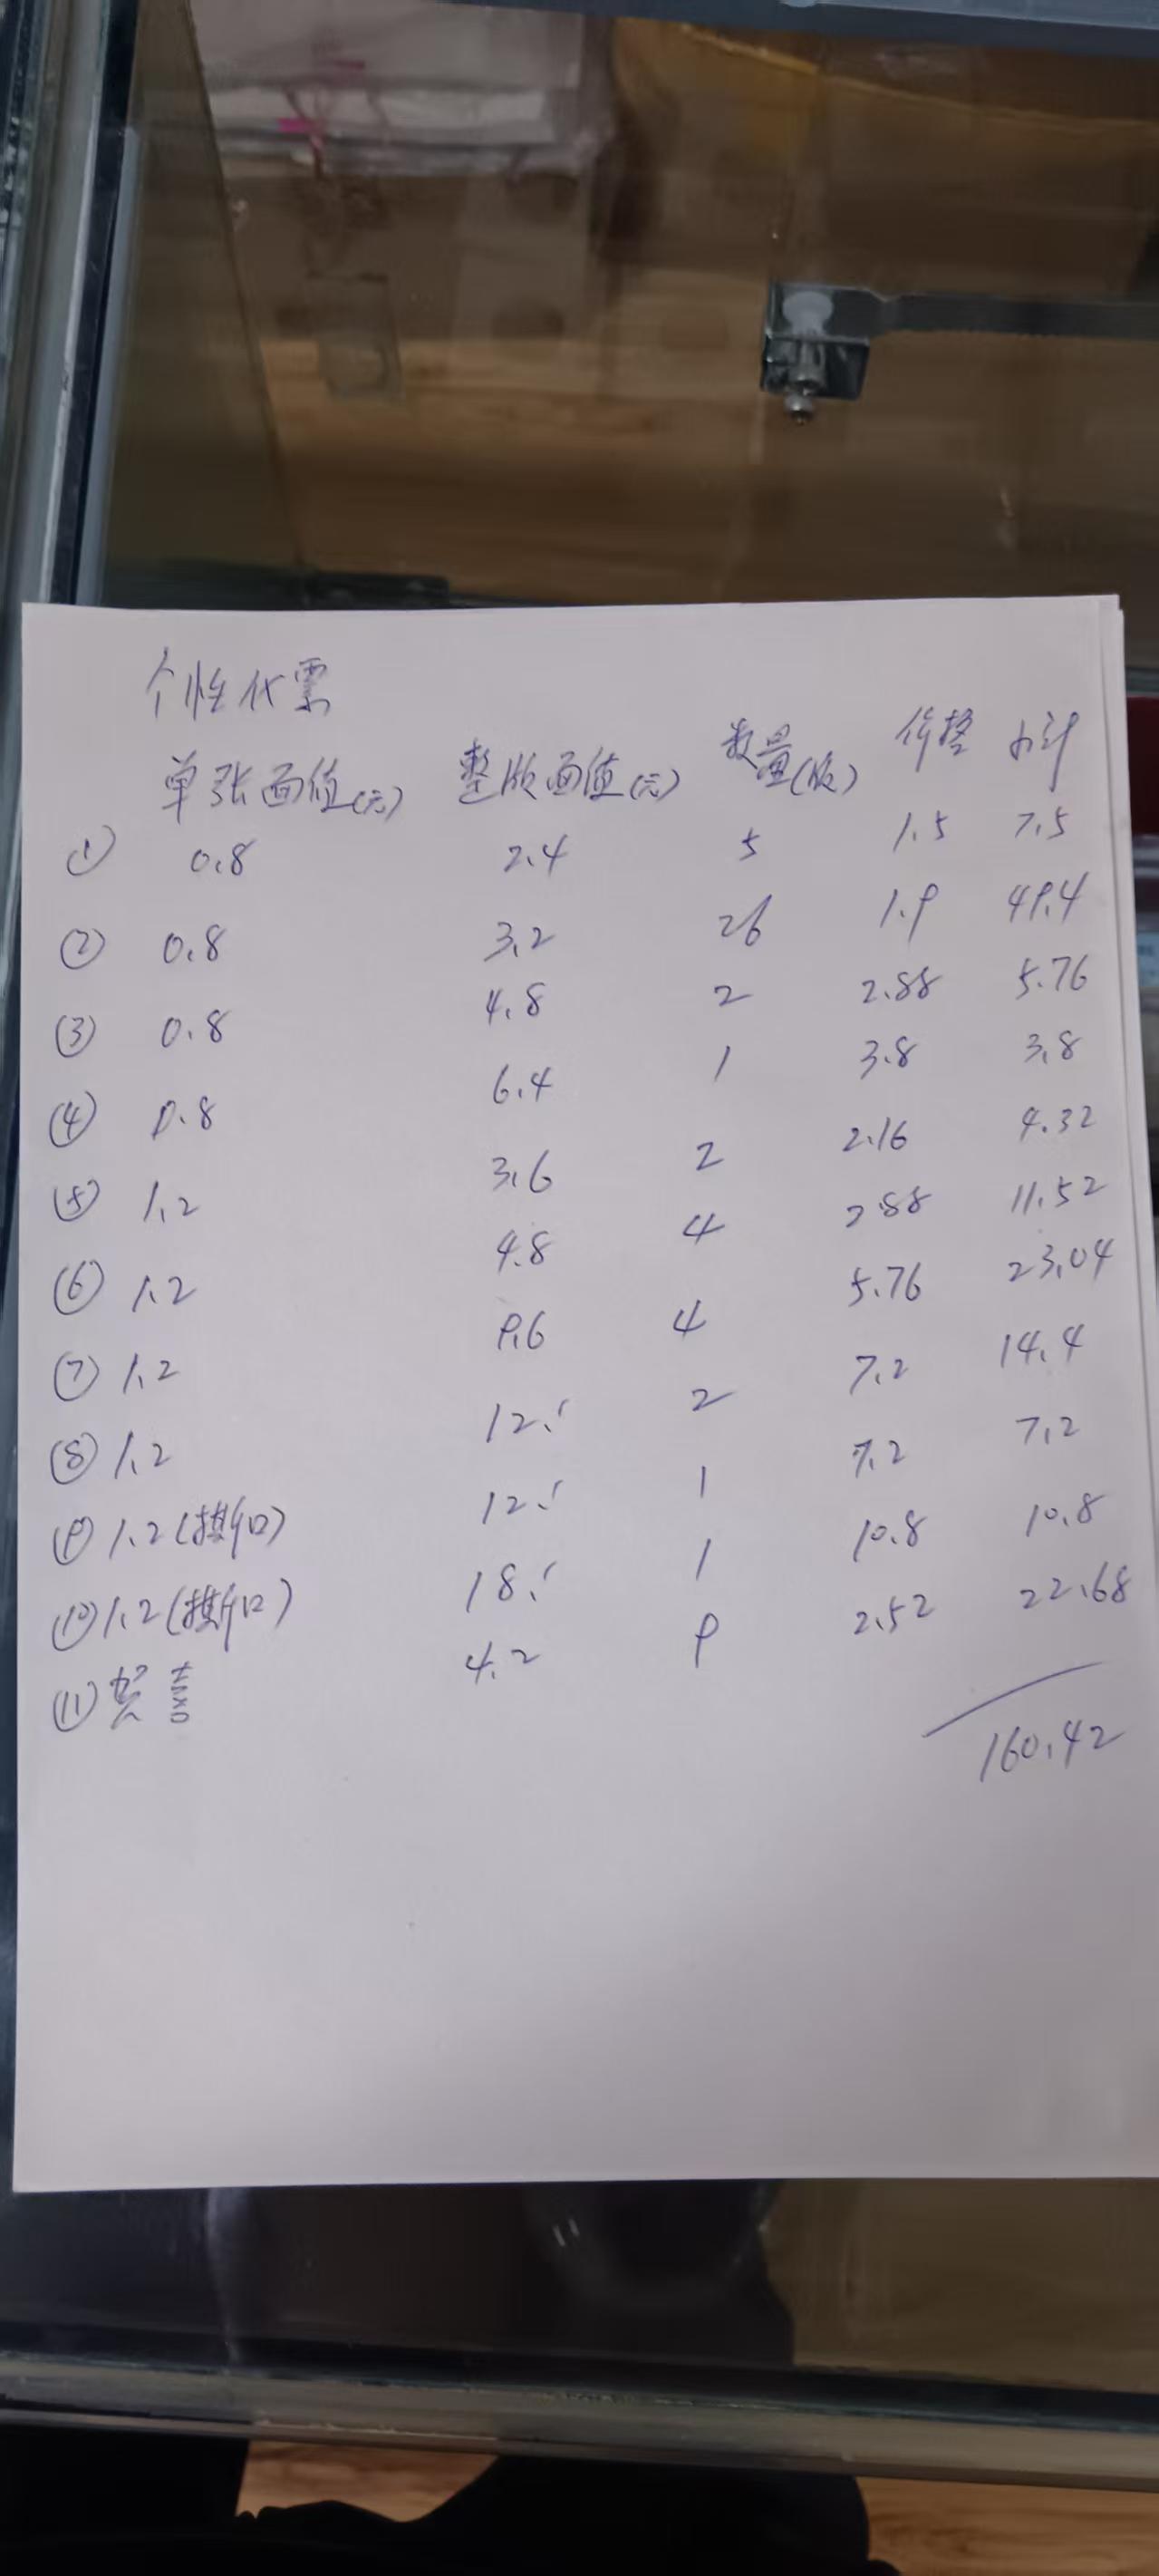 个性化票
单张面值(元) 整版面值(元) 数量(版) 价格 小计
① 0.8 2.4 5 1.5 7.5
② 0.8 3.2 26 1.9 49.4
③ 0.8 4.8 2 2.88 5.76
④ 0.8 6.4 1 3.8 3.8
⑤ 1.2 3.6 2 2.16 4.32
⑥ 1.2 4.8 4 2.88 11.52
⑦ 1.2 9.6 4 5.76 23.04
⑧ 1.2 12.- 2 7.2 14.4
⑨ 1.2(撕口) 12.- 1 7.2 7.2
⑩ 1.2(撕口) 18.- 1 10.8 10.8
⑪ 贺喜 4.2 9 2.52 22.68
160.42